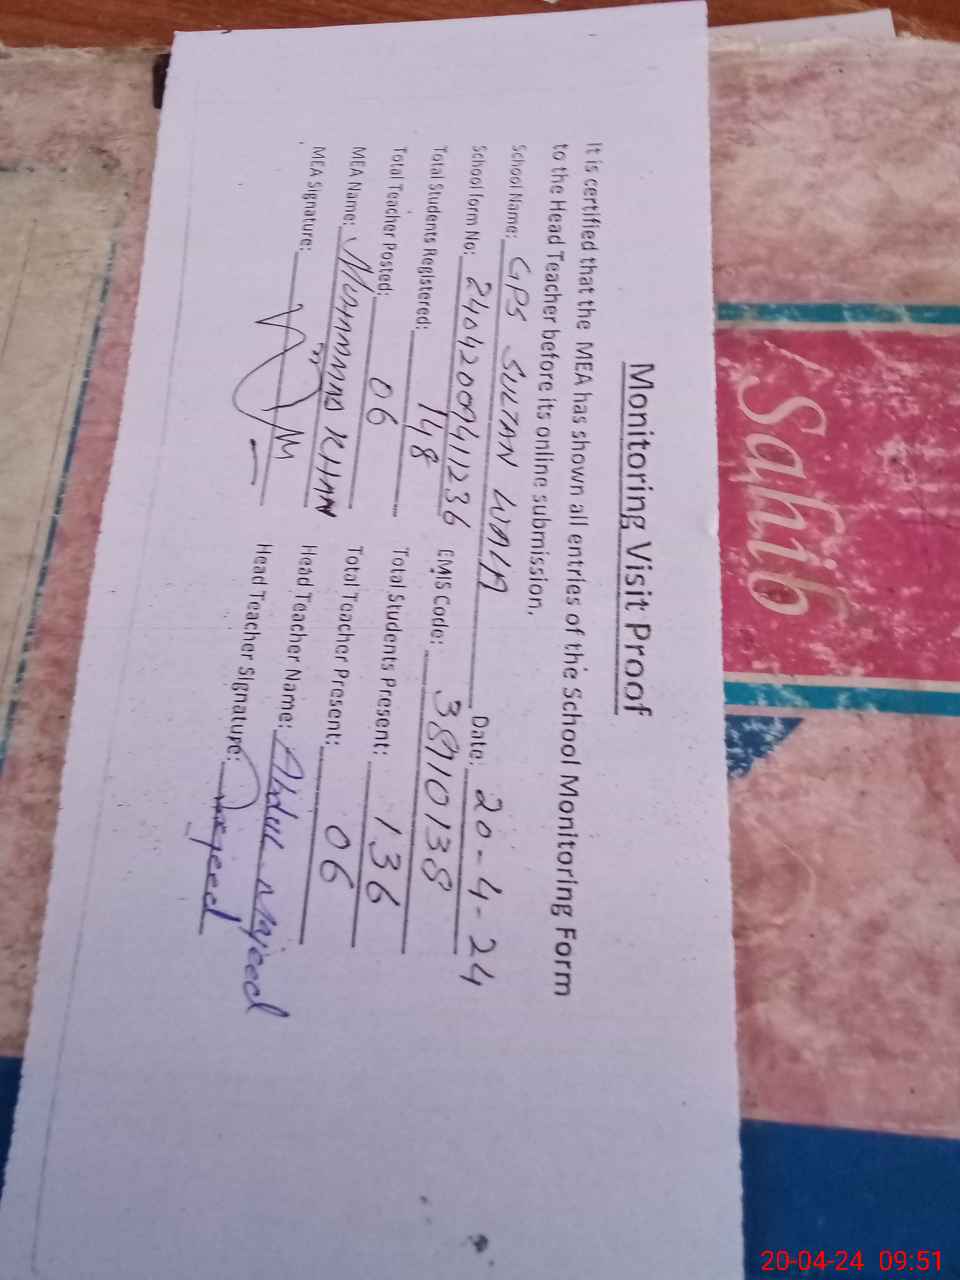 Monitoring Visit Proof
It is certified that the MEA has shown all entries of the School Monitoring Form
to the Head Teacher before its online submission.
School Name: GPS SULTAN WALA Date: 20-4-24
School form No: 24042009411236 EMIS Code: 38910138
Total Students Registered: 148 Total Students Present: 136
Total Teacher Posted: 06 Total Teacher Present: 06
MEA Name: MUHAMMAD KHAN Head Teacher Name: Abdul Majeed
MEA Signature: Head Teacher Signature: Majeed
Sahib
20-04-24 09:51